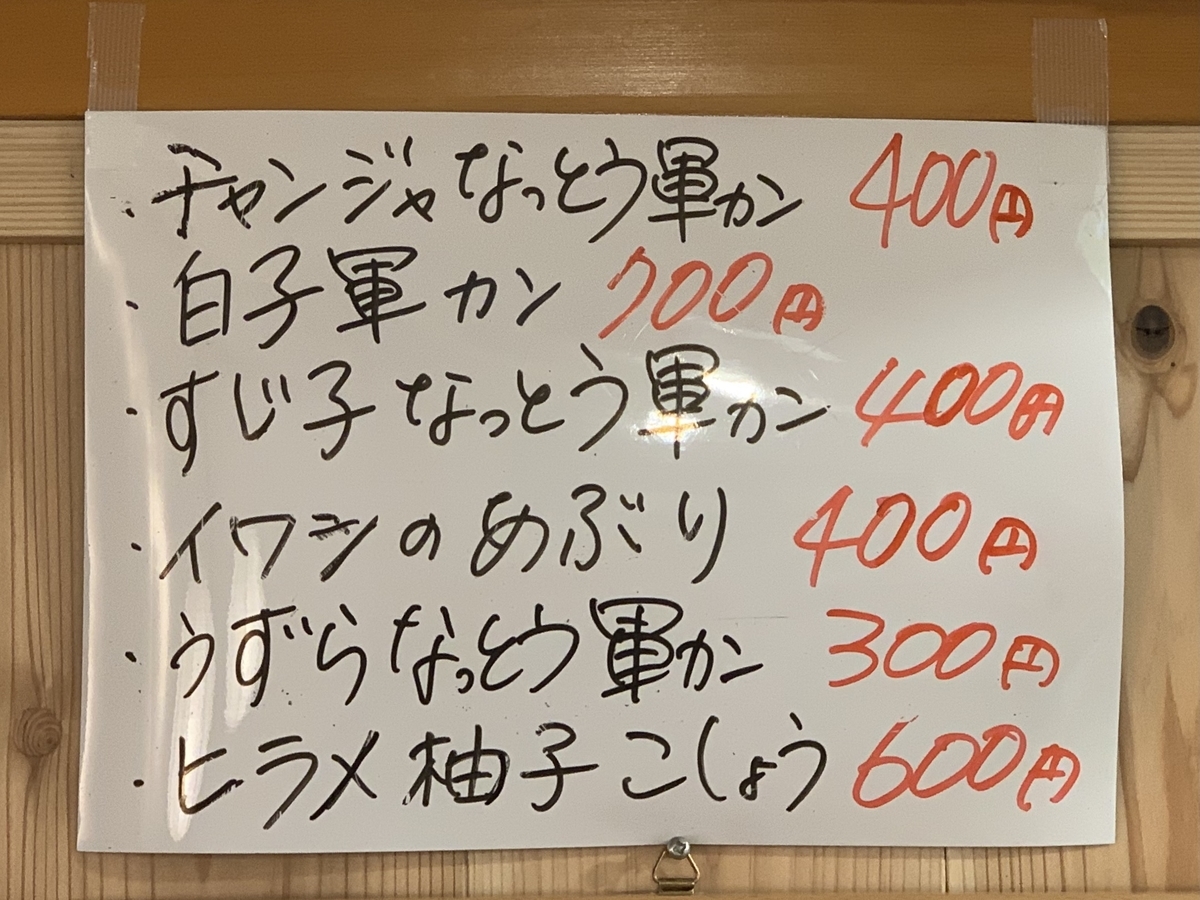 ・チャンジャなっとう軍カン 400円
・白子軍カン 700円
・すじ子なっとう軍カン 400円
・イワシのめぶり 400円
・うずらなっとう軍カン 300円
・ヒラメ柚子こしょう 600円